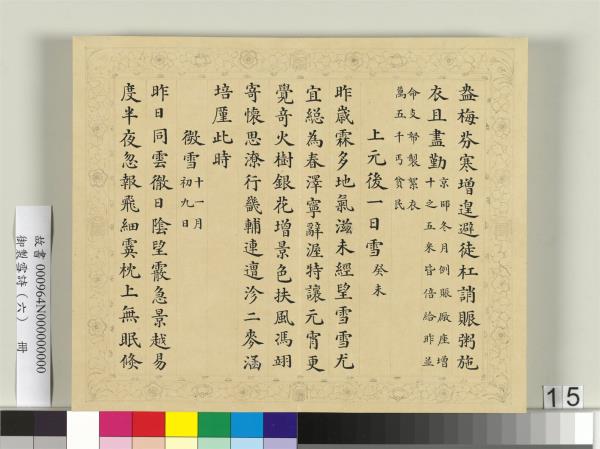 盎梅芬寒增遑避徒杠誚賑粥施
衣且盡勤
京師冬月例賑廠座增
十之五米皆倍給昨並
命支帑製絮衣
萬五千丐貧民
上元後一日雪 癸未
昨歲霖多地氣滋未經望雪雪尤
宜總為春澤寧辭渥特讓元宵更
覺奇火樹銀花增景色扶風馮翊
寄懷思潦行畿輔連邅沴二麥涵
培厪此時
微雪
十一月
初九日
昨日同雲徹日陰望霰急景越易
度半夜忽報飛細霙枕上無眠倏
故書 000964N000000000
御製雪詩(六) 冊
15